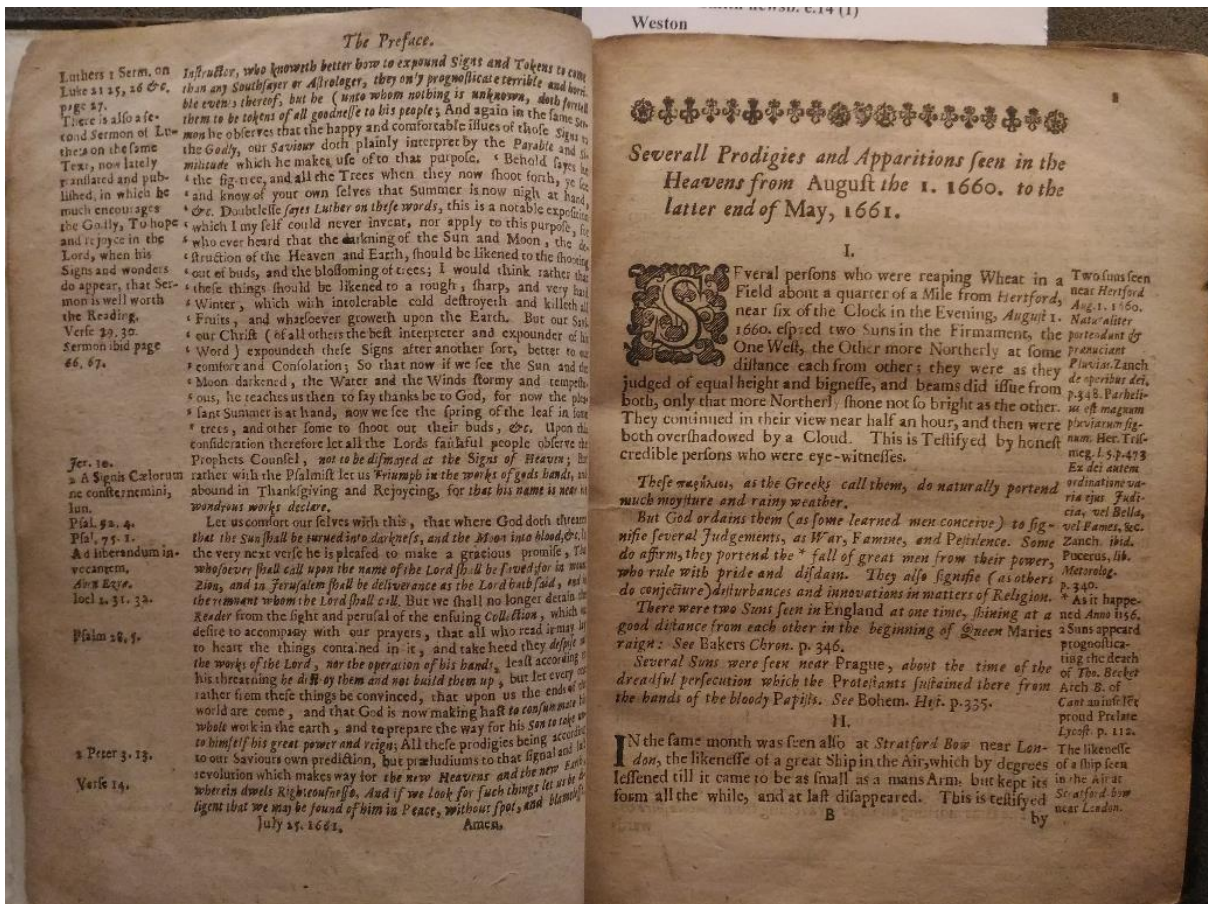 Weston
The Preface.
Luthers 1 Serm. on
Luke 21 25, 26 &c.
page 27.
There is alſo a ſe-
cond Sermon of Lu-
thers on the ſame
Text, now lately
tranſlated and pub-
liſhed, in which he
much encourages
the Godly, To hope
and rejoyce in the
Lord, when his
Signs and wonders
do appear, that Ser-
mon is well worth
the Reading.
Verſe 29, 30.
Sermon ibid page
66, 67.
Jer. 10.
2 A Signis Cælorum
ne conſternemini,
Iun.
Pſal. 92, 4.
Pſal, 75. 1.
Ad liberandum in-
vocantem.
Aven Ezra.
Ioel 2. 31. 32.
Pſalm 28, 5.
2 Peter 3. 13.
Verſe 14.
Inſtructor, who knoweth better how to expound Signs and Tokens to come
than any Southſayer or Aſtrologer, they only prognoſticate terrible and horri-
ble events thereof, but he (unto whom nothing is unknown, doth foretell
them to be tokens of all goodneſſe to his people; And again in the ſame Ser-
mon he obſerves that the happy and comfortable iſſues of thoſe Signs to
the Godly, our Saviour doth plainly interpret by the Parable and Si-
militude which he makes uſe of to that purpoſe. ‘ Behold ſayes he
‘ the fig-tree, and all the Trees when they now ſhoot forth, ye ſee
‘ and know of your own ſelves that Summer is now nigh at hand,
‘ &c. Doubtleſſe ſayes Luther on theſe words, this is a notable expoſition
‘ which I my ſelf could never invent, nor apply to this purpoſe, for
‘ who ever heard that the darkning of the Sun and Moon, the de-
‘ ſtruction of the Heaven and Earth, ſhould be likened to the ſhooting
‘ out of buds, and the bloſſoming of trees; I would think rather that
‘ theſe things ſhould be likened to a rough, ſharp, and very hard
‘ Winter, which with intolerable cold deſtroyeth and killeth all
‘ Fruits, and whatſoever groweth upon the Earth. But our Savi-
‘ our Chriſt (of all others the beſt interpreter and expounder of his
‘ Word) expoundeth theſe Signs after another ſort, better to our
‘ comfort and Conſolation; So that now if we ſee the Sun and the
‘ Moon darkened, the Water and the Winds ſtormy and tempeſtu-
‘ ous, he teaches us then to ſay thanks be to God, for now the plea-
‘ ſant Summer is at hand, now we ſee the ſpring of the leaf in ſome
‘ trees, and other ſome to ſhoot out their buds, &c. Upon this
conſideration therefore let all the Lords faithful people obſerve the
Prophets Counſel, not to be diſmayed at the Signs of Heaven; But
rather with the Pſalmiſt let us Triumph in the works of gods hands, and
abound in Thankſgiving and Rejoycing, for that his name is near his
wondrous works declare.
Let us comfort our ſelves with this, that where God doth threaten
that the Sun ſhall be turned into darkneſs, and the Moon into blood, &c. in
the very next verſe he is pleaſed to make a gracious promiſe, That
whoſoever ſhall call upon the name of the Lord ſhall be ſaved; for in mount
Zion, and in Jeruſalem ſhall be deliverance as the Lord hath ſaid, and in
the remnant whom the Lord ſhall call. But we ſhall no longer detain the
Reader from the ſight and peruſal of the enſuing Collection, which we
deſire to accompany with our prayers, that all who read it may lay
to heart the things contained in it, and take heed they deſpiſe not
the works of the Lord, nor the operation of his hands, leaſt according to
his threatning he deſtroy them and not build them up, but let every one
rather from theſe things be convinced, that upon us the ends of the
world are come, and that God is now making haſt to conſummate his
whole work in the earth, and to prepare the way for his Son to take unto
to himſelf his great power and reign; All theſe prodigies being according
to our Saviours own prediction, but præludiums to that ſignal and laſt
revolution which makes way for the new Heavens and the new Earth,
wherein dwels Righteouſneſſe. And if we look for ſuch things let us be di-
ligent that we may be found of him in Peace, without ſpot, and blameleſs.
July 25. 1661. Amen.
Severall Prodigies and Apparitions ſeen in the
Heavens from Auguſt the 1. 1660. to the
latter end of May, 1661.
I.
SEveral perſons who were reaping Wheat in a
Field about a quarter of a Mile from Hertford,
near ſix of the Clock in the Evening, Auguſt 1.
1660. eſpyed two Suns in the Firmament, the
One Weſt, the Other more Northerly at ſome
diſtance each from other; they were as they
judged of equal height and bigneſſe, and beams did iſſue from
both, only that more Northerly ſhone not ſo bright as the other.
They continued in their view near half an hour, and then were
both overſhadowed by a Cloud. This is Teſtifyed by honeſt
credible perſons who were eye-witneſſes.
Theſe παρήλιοι, as the Greeks call them, do naturally portend
much moyſture and rainy weather.
But God ordains them (as ſome learned men conceive) to ſig-
nifie ſeveral Judgements, as War, Famine, and Peſtilence. Some
do affirm, they portend the * fall of great men from their power,
who rule with pride and diſdain. They alſo ſignifie (as others
do conjecture) diſturbances and innovations in matters of Religion.
There were two Suns ſeen in England at one time, ſhining at a
good diſtance from each other in the beginning of Queen Maries
raign: See Bakers Chron. p. 346.
Several Suns were ſeen near Prague, about the time of the
dreadful perſecution which the Proteſtants ſuſtained there from
the hands of the bloody Papiſts. See Bohem. Hiſt. p. 335.
II.
IN the ſame month was ſeen alſo at Stratford Bow near Lon-
don, the likeneſſe of a great Ship in the Air, which by degrees
leſſened till it came to be as ſmall as a mans Arm, but kept its
form all the while, and at laſt diſappeared. This is teſtifyed
B by
Two ſuns ſeen
near Hertford
Aug. 1. 1660.
Naturaliter
portendunt &
prænuciant
Pluvias. Zanch
de operibus dei,
p. 348. Parheli-
us eſt magnum
pluviarum ſig-
num. Her. Triſ-
meg. l. 5. p. 473
Ex dei autem
ordinatione va-
ria ejus Judi-
cia, vel Bella,
vel Fames, &c.
Zanch. ibid.
Pucerus, lib.
Meteorolog.
p. 340.
* As it happe-
ned Anno 1156.
2 Suns appeard
prognoſtica-
ting the death
of Tho. Becket
Arch B. of
Cant an inſolēt
proud Prelate
Lycoſt. p. 112.
The likeneſſe
of a ſhip ſeen
in the Air at
Stratford-bow
near London.